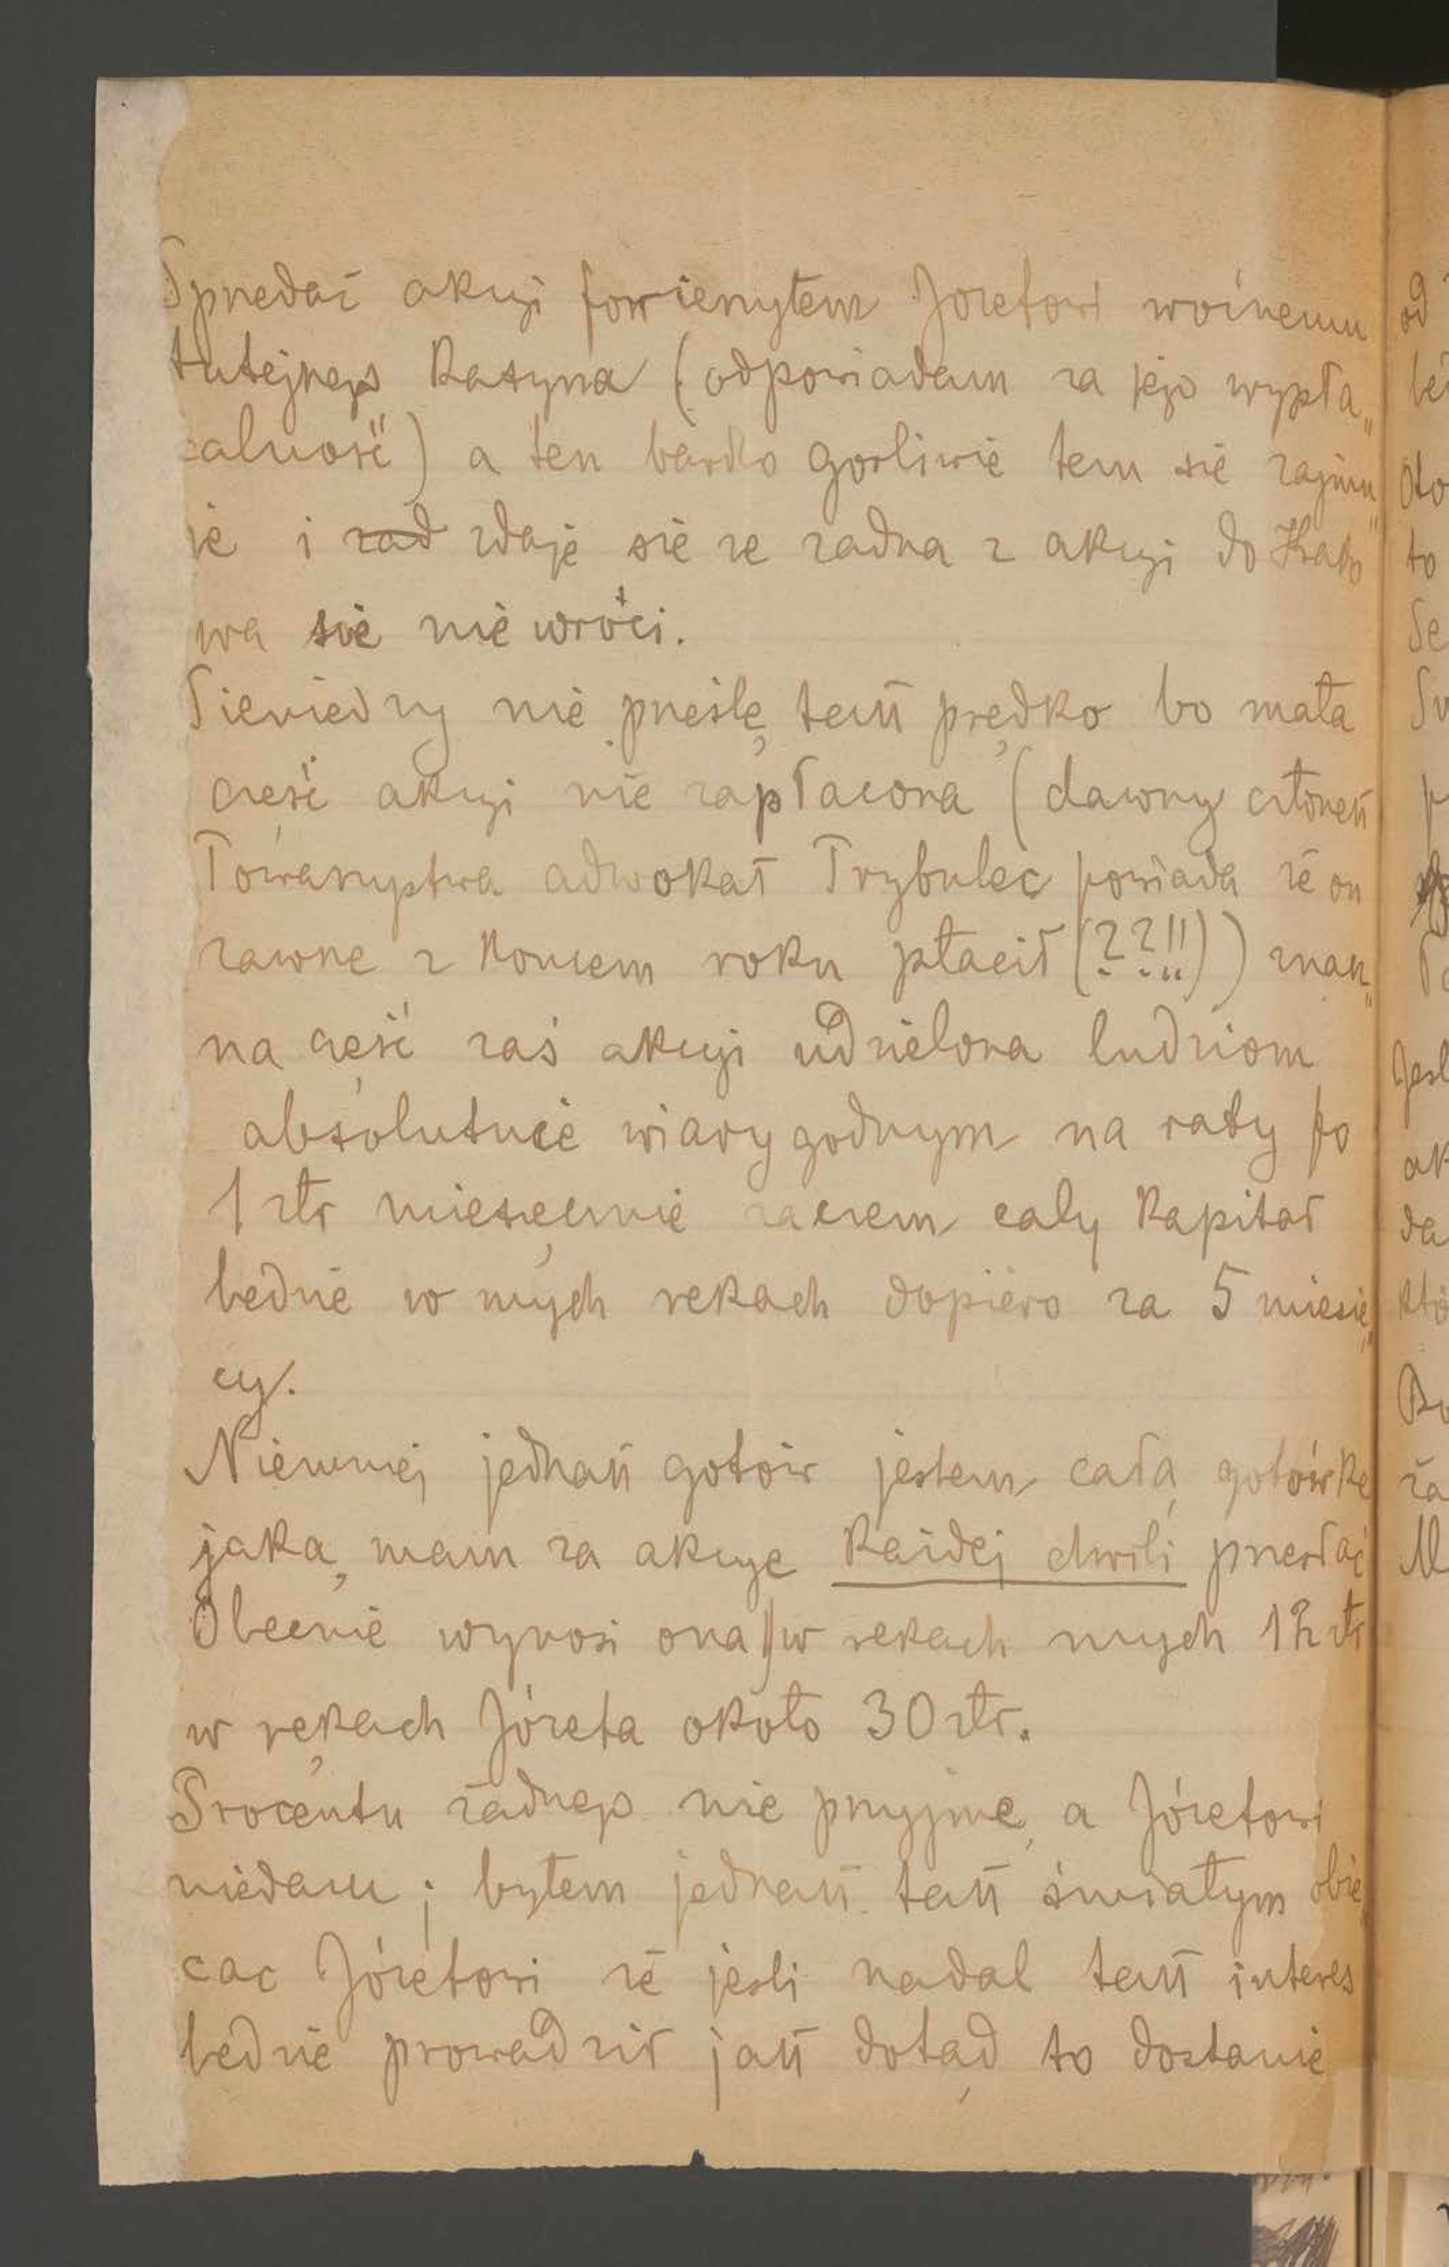 Sprzedaż akcyi powierzyłem Józefowi woźnemu
tutejszego Kasyna (odpowiadam za jego wypła„
calność) a ten bardzo gorliwie tem się zajmu„
je i zdaje się ze zadna z akcyi do Krako
wa się nie wróci.
Pieniedzy nie prześlę tak prędko bo mała
część akcyi nie zapłacona (dawny członek
Towarzystwa adwokat Trybulec powiada że on
zawsze z koncem roku płacił (??!!)) znacz„
na część zaś akcyi udzielona ludziom
absolutnie wiary godnym na raty po
1 złr miesięcznie zaczem cały kapitał
bedzie w mych rekach dopiero za 5 miesię„
cy.
Niemniej jednak gotów jestem całą gotówkę
jaką mam za akcye każdej chwili przesłać
Obecnie wynosi ona w rekach mych 12 złr
w rękach Józefa około 30 złr.
Procentu żadnego nie przyjmę a Józefowi
niedam; byłem jednak tak śmiałym obie„
cac Józefowi że jesli nadal tak interes
bedzie prowadził jak dotąd to dostanie